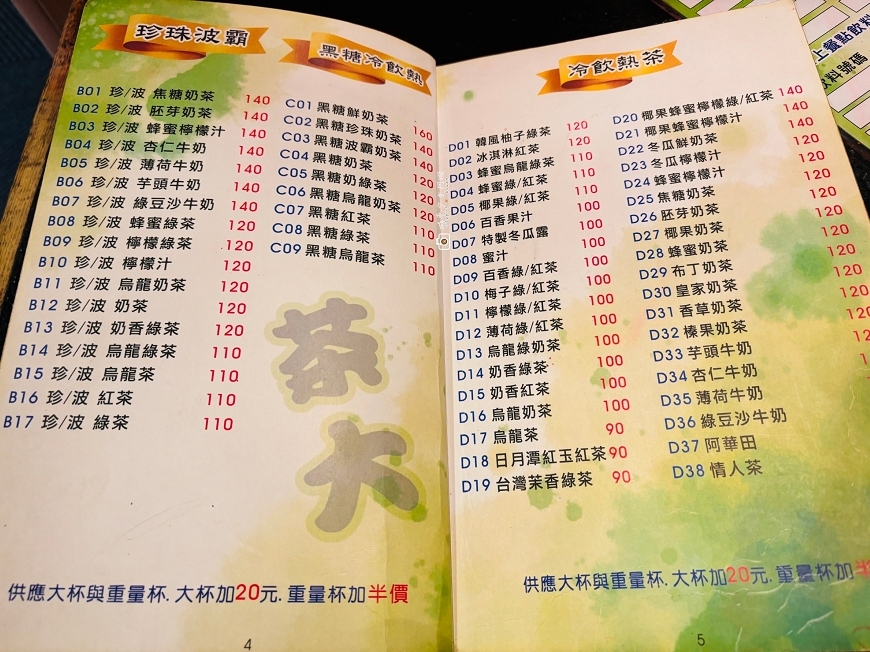 珍珠波霸
B01 珍/波 焦糖奶茶 140
B02 珍/波 胚芽奶茶 140
B03 珍/波 蜂蜜檸檬汁 140
B04 珍/波 杏仁牛奶 140
B05 珍/波 薄荷牛奶 140
B06 珍/波 芋頭牛奶 140
B07 珍/波 綠豆沙牛奶 140
B08 珍/波 蜂蜜綠茶 120
B09 珍/波 檸檬綠茶 120
B10 珍/波 檸檬汁 120
B11 珍/波 烏龍奶茶 120
B12 珍/波 奶茶 120
B13 珍/波 奶香綠茶 120
B14 珍/波 烏龍綠茶 110
B15 珍/波 烏龍茶 110
B16 珍/波 紅茶 110
B17 珍/波 綠茶 110
黑糖冷飲熱
C01 黑糖鮮奶茶 160
C02 黑糖珍珠奶茶 140
C03 黑糖波霸奶茶 140
C04 黑糖奶茶 120
C05 黑糖奶綠茶 120
C06 黑糖烏龍奶茶 120
C07 黑糖紅茶 110
C08 黑糖綠茶 110
C09 黑糖烏龍茶 110
茶大
供應大杯與重量杯. 大杯加20元. 重量杯加半價
4
冷飲熱茶
D01 韓風柚子綠茶 120
D02 冰淇淋紅茶 120
D03 蜂蜜烏龍綠茶 110
D04 蜂蜜綠/紅茶 110
D05 椰果綠/紅茶 110
D06 百香果汁 100
D07 特製冬瓜露 100
D08 蜜汁 100
D09 百香綠/紅茶 100
D10 梅子綠/紅茶 100
D11 檸檬綠/紅茶 100
D12 薄荷綠/紅茶 100
D13 烏龍綠奶茶 100
D14 奶香綠茶 100
D15 奶香紅茶 100
D16 烏龍奶茶 100
D17 烏龍茶 90
D18 日月潭紅玉紅茶 90
D19 台灣茉香綠茶 90
D20 椰果蜂蜜檸檬綠/紅茶 140
D21 椰果蜂蜜檸檬汁 140
D22 冬瓜鮮奶茶 140
D23 冬瓜檸檬汁 120
D24 蜂蜜檸檬汁 120
D25 焦糖奶茶 120
D26 胚芽奶茶 120
D27 椰果奶茶 120
D28 蜂蜜奶茶 120
D29 布丁奶茶 120
D30 皇家奶茶 120
D31 香草奶茶 120
D32 榛果奶茶
D33 芋頭牛奶
D34 杏仁牛奶
D35 薄荷牛奶
D36 綠豆沙牛奶
D37 阿華田
D38 情人茶
供應大杯與重量杯. 大杯加20元. 重量杯加
5
上餐點飲料
號碼